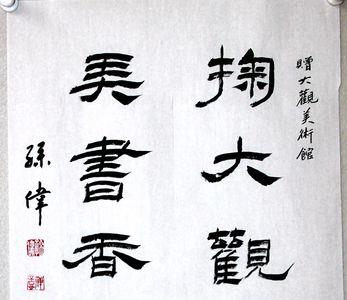 贈大觀美術館
掬大觀
書香
孫偉